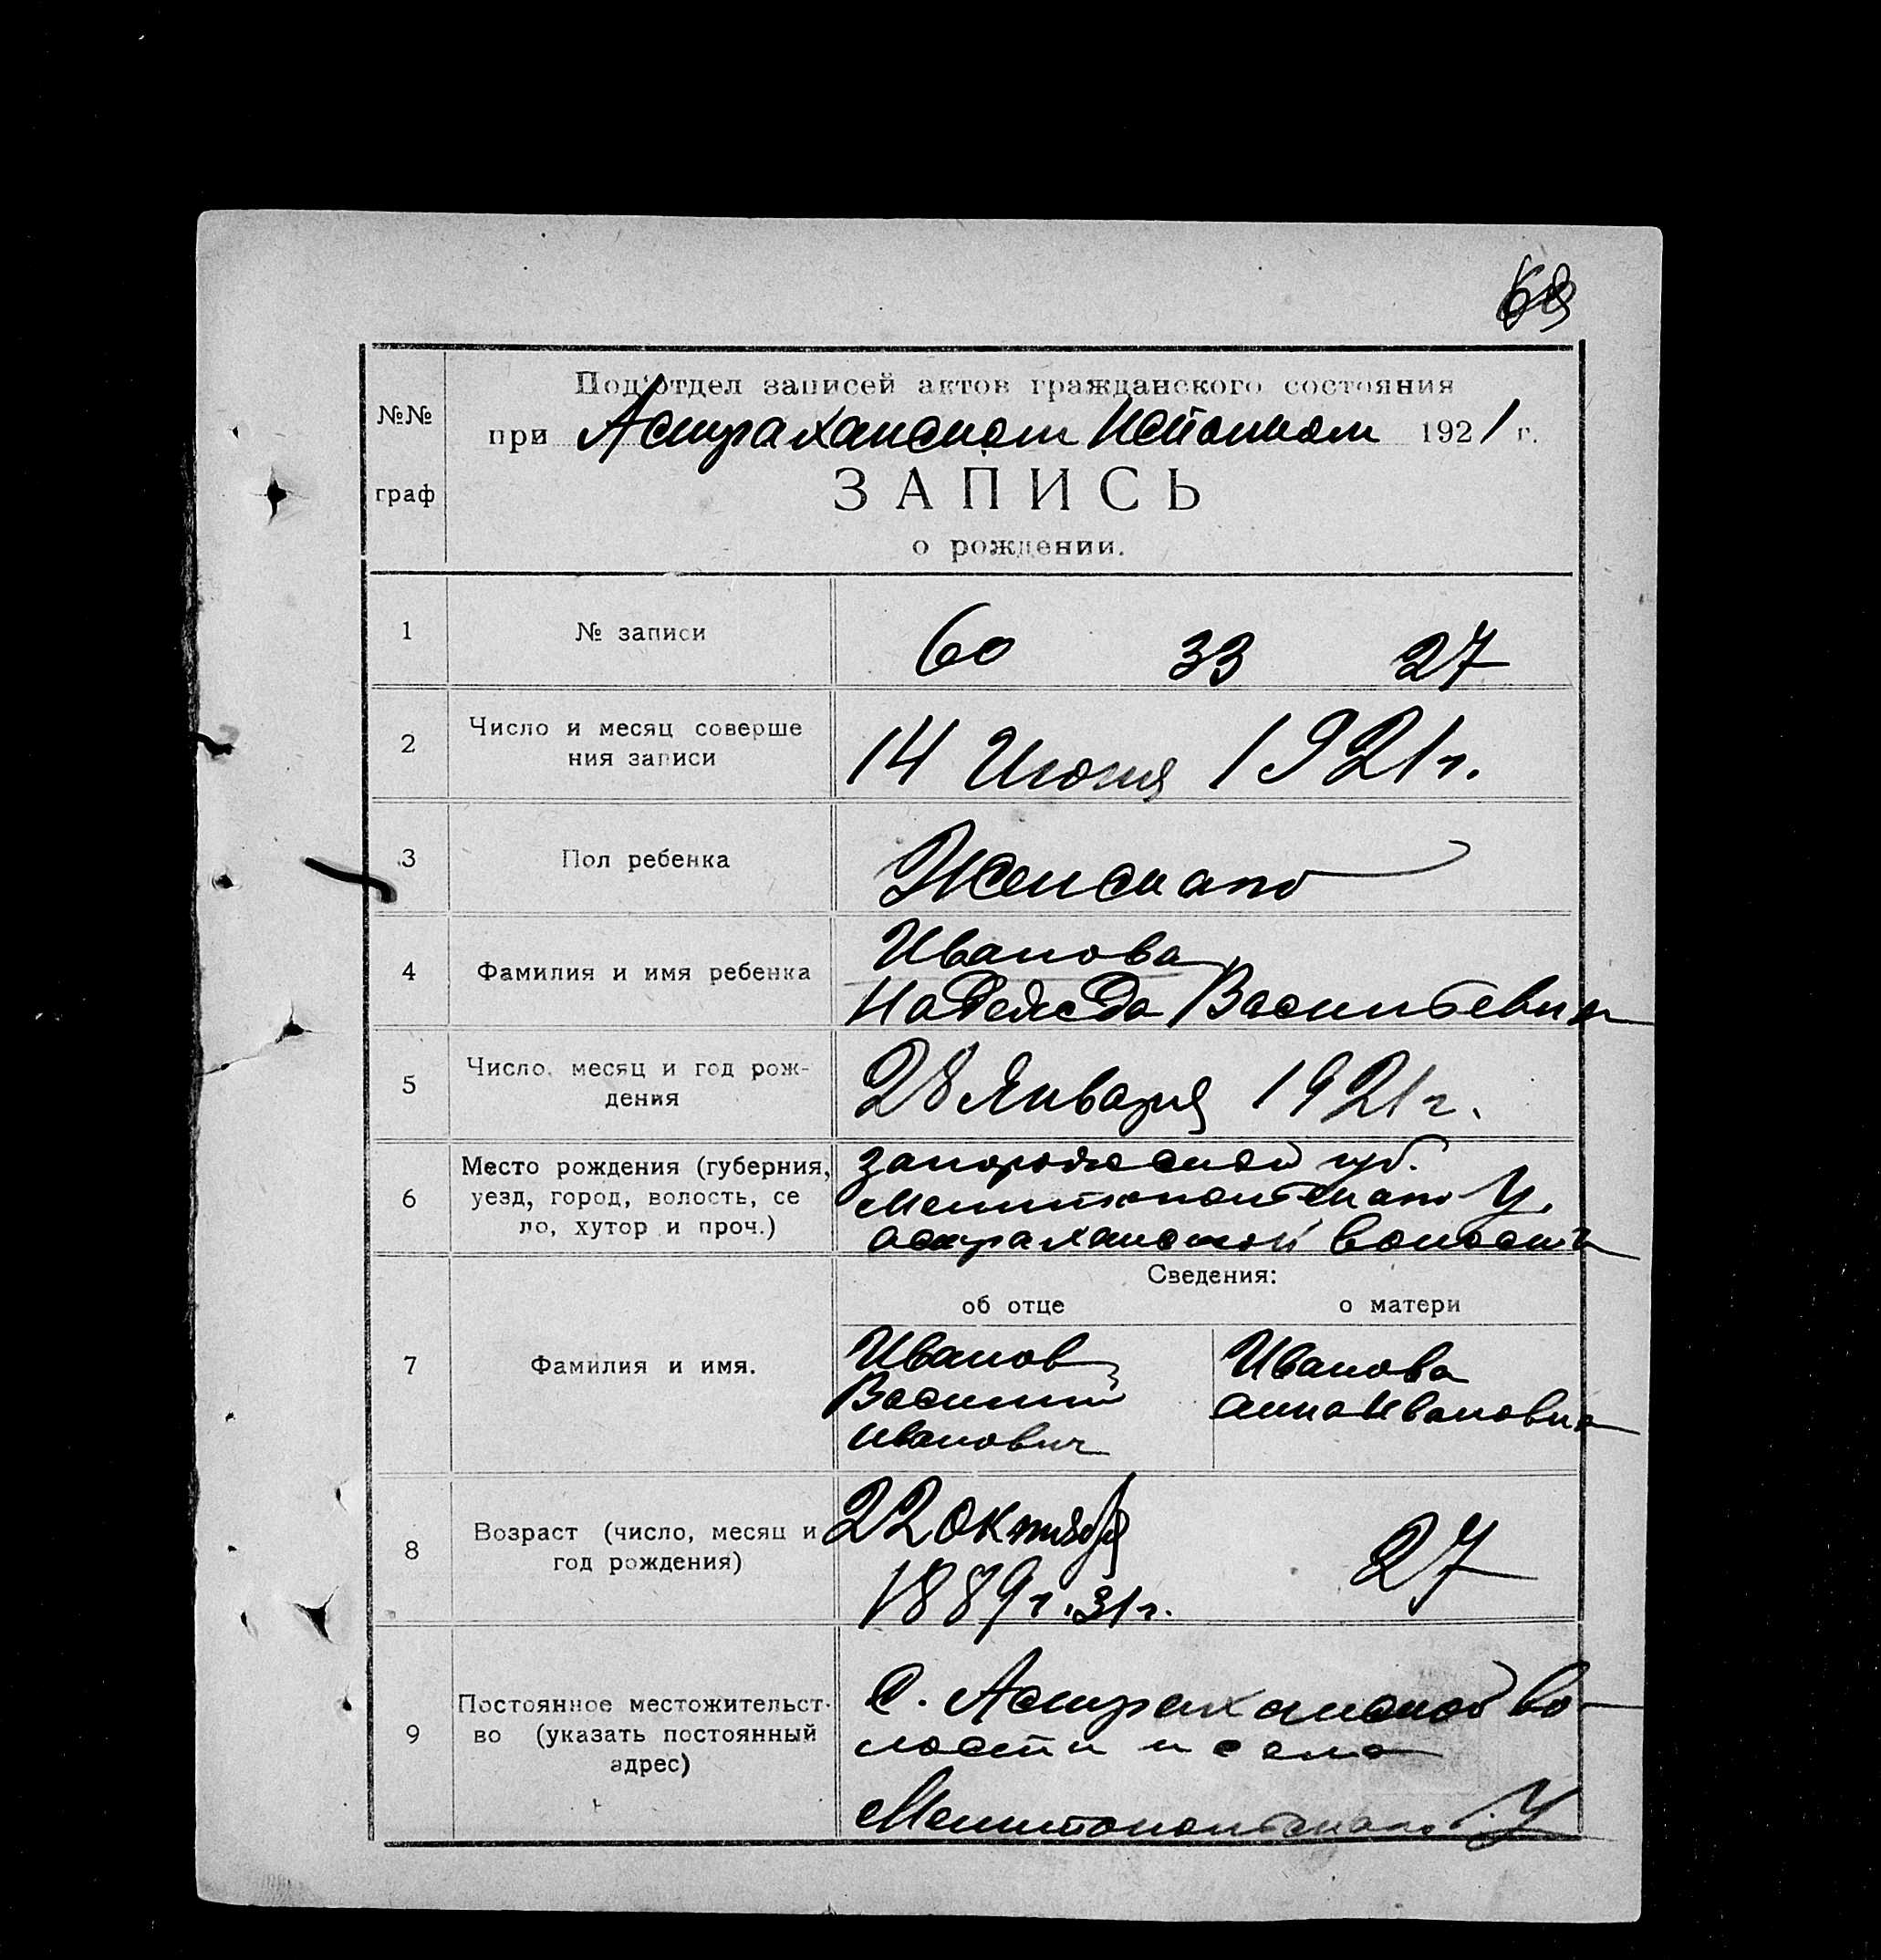 68
Под'отдел записей актов гражданского состояния
№№ граф
при Астраханском Исполком 1921 г.
ЗАПИСЬ
о рождении.
1 № записи 60 33 27
2 Число и месяц соверше
ния записи 14 Июня 1921 г.
3 Пол ребенка Женского
4 Фамилия и имя ребенка Иванова
Надежда Васильевна
5 Число, месяц и год рож-
дения 28 Января 1921 г.
6 Место рождения (губерния, Запорожской губ.
уезд, город, волость, се Мелитопольского У.
ло, хутор и проч.) Астраханской волости
Сведения:
об отце о матери
7 Фамилия и имя. Иванов Иванова
Василий Анна Ивановна
Иванович
8 Возраст (число, месяц и 22 октября 27
год рождения) 1889 г. 31 г.
9 Постоянное местожительст- С. Астраханской во-
во (указать постоянный лости и села
адрес) Мелитопольского У